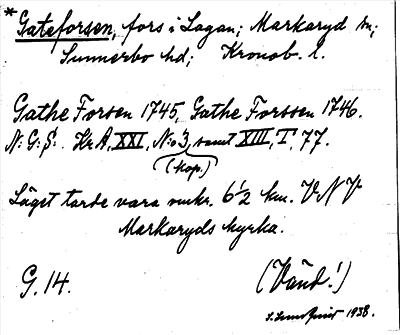 * Gateforsen, fors i Lagan; Markaryd sn;
Sunnerbo hd; Kronob. l.
Gathe Forsen 1745, Gathe Forssen 1746.
N: G: S: Kr A, XXI, N:o 3, samt XIII, T, 77.
(kop.)
Läget torde vara omkr. 6 1/2 km. V N V
Markaryds kyrka.
G. 14. (Vänd!)
1938.